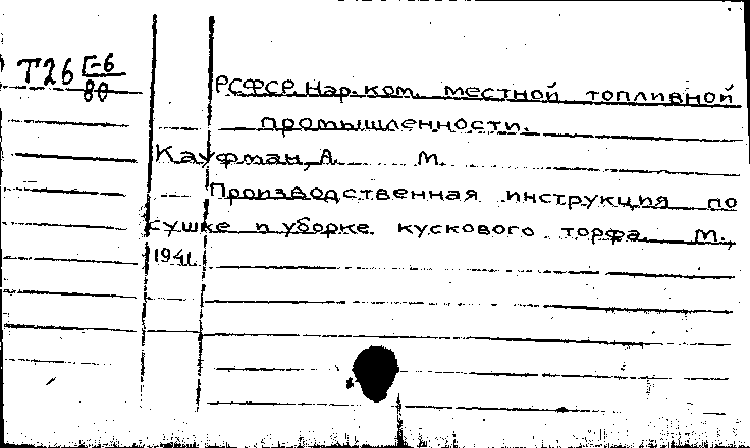 Т26 Г-6
80
РСФСР Нар. ком. местной топливной
промышленности.
Кауфман, А. М.
Производственная инструкция по
сушке и уборке кускового торфа. М.,
1941.